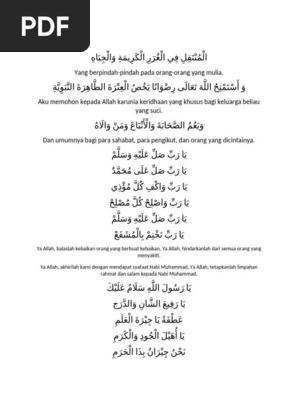 PDF
الْمُنْتَقِلِ فِي الْغُرَرِ الْكَرِيمَةِ وَالْجِبَاهِ
Yang berpindah-pindah pada orang-orang yang mulia.
وَ أَسْتَمْنِحُ اللَّهَ تَعَالَى رِضْوَانًا يَخُصُّ الْعِتْرَةَ الطَّاهِرَةَ النَّبَوِيَّةِ
Aku memohon kepada Allah karunia keridhaan yang khusus bagi keluarga beliau
yang suci.
وَيَعُمُّ الصَّحَابَةَ وَالْأَتْبَاعَ وَمَنْ وَالَاهُ
Dan umumnya bagi para sahabat, para pengikut, dan orang yang dicintainya.
يَا رَبِّ صَلِّ عَلَيْهِ وَسَلَّمْ
يَا رَبِّ صَلِّ عَلَى مُحَمَّدْ
يَا رَبِّ وَاكْفِ كُلَّ مُؤْذِي
يَا رَبِّ وَاصْلِحْ كُلَّ مُصْلِحْ
يَا رَبِّ صَلِّ عَلَيْهِ وَسَلَّمْ
يَا رَبِّ نَخْتِمْ بِالْمُشَفَّعْ
Ya Allah, balaslah kebaikan orang yang berbuat kebaikan, Ya Allah, hindarkanlah dari semua orang yang
menyakiti.
Ya Allah, akhirilah kami dengan mendapat syafaat Nabi Muhammad, Ya Allah, tetapkanlah limpahan
rahmat dan salam kepada Nabi Muhammad.
يَا رَسُولَ اللَّهِ سَلَامٌ عَلَيْكَ
يَا رَفِيعَ الشَّانِ وَالدَّرَجِ
عَطْفَةً يَا جِيْرَةَ الْعَلَمِ
يَا أُهَيْلَ الْجُودِ وَالْكَرَمِ
نَحْنُ جِيْرَانٌ بِذَا الْحَرَمِ